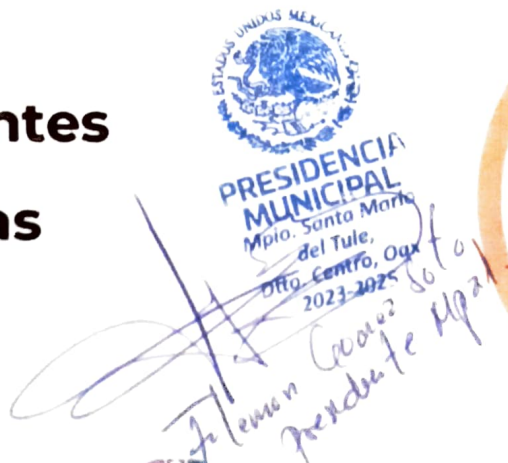 ntes
as
ESTADOS UNIDOS MEXICANOS
PRESIDENCIA
MUNICIPAL
Mpio. Santa María
del Tule,
Dtto. Centro, Oax
2023-2025
Filemon Soto
Presidente Mpal